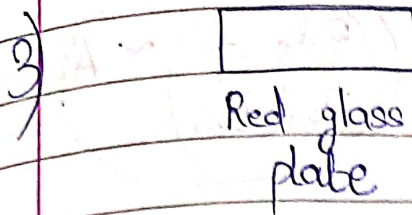 3)
Red glass
plate